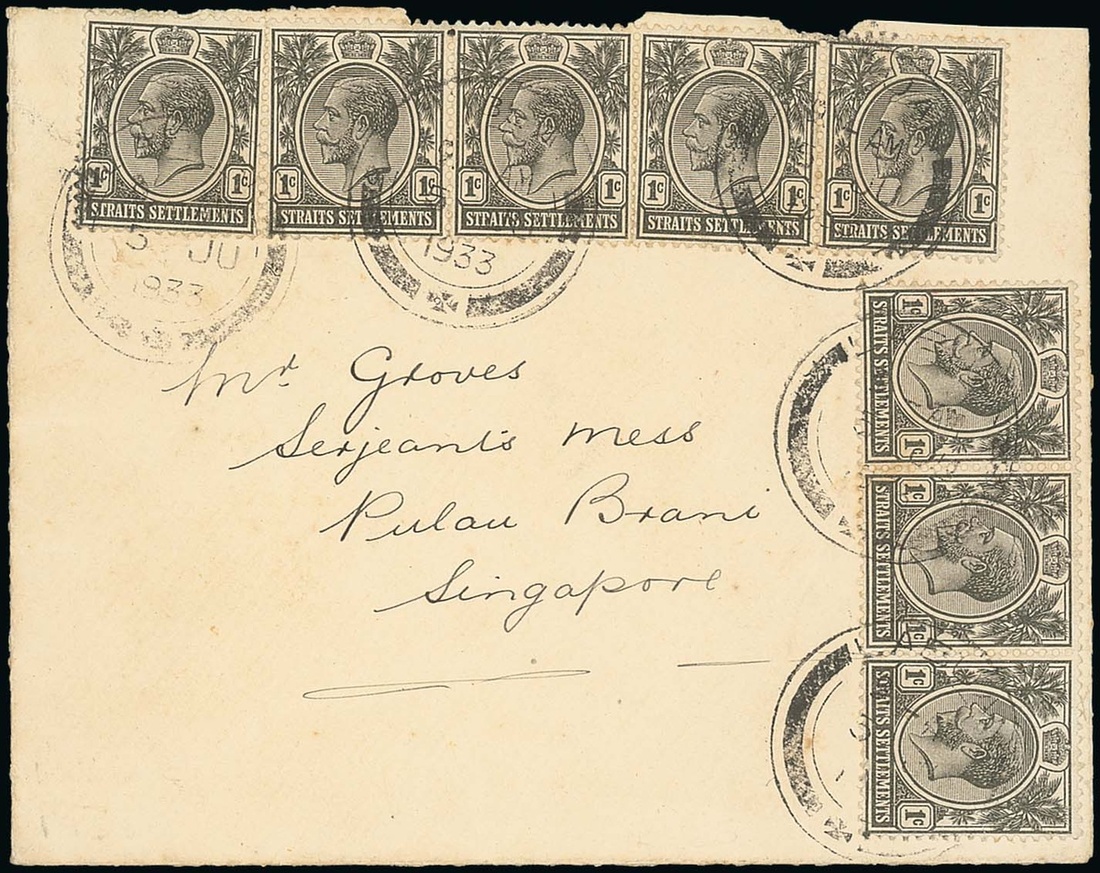 1c 1c 1c 1c 1c 1c 1c 1c 1c 1c
STRAITS SETTLEMENTS STRAITS SETTLEMENTS STRAITS SETTLEMENTS STRAITS SETTLEMENTS STRAITS SETTLEMENTS
JU
1933
1933
Mr Groves
Serjeants Mess
Pulau Brani
Singapore
1c STRAITS SETTLEMENTS 1c
1c STRAITS SETTLEMENTS 1c
1c STRAITS SETTLEMENTS 1c